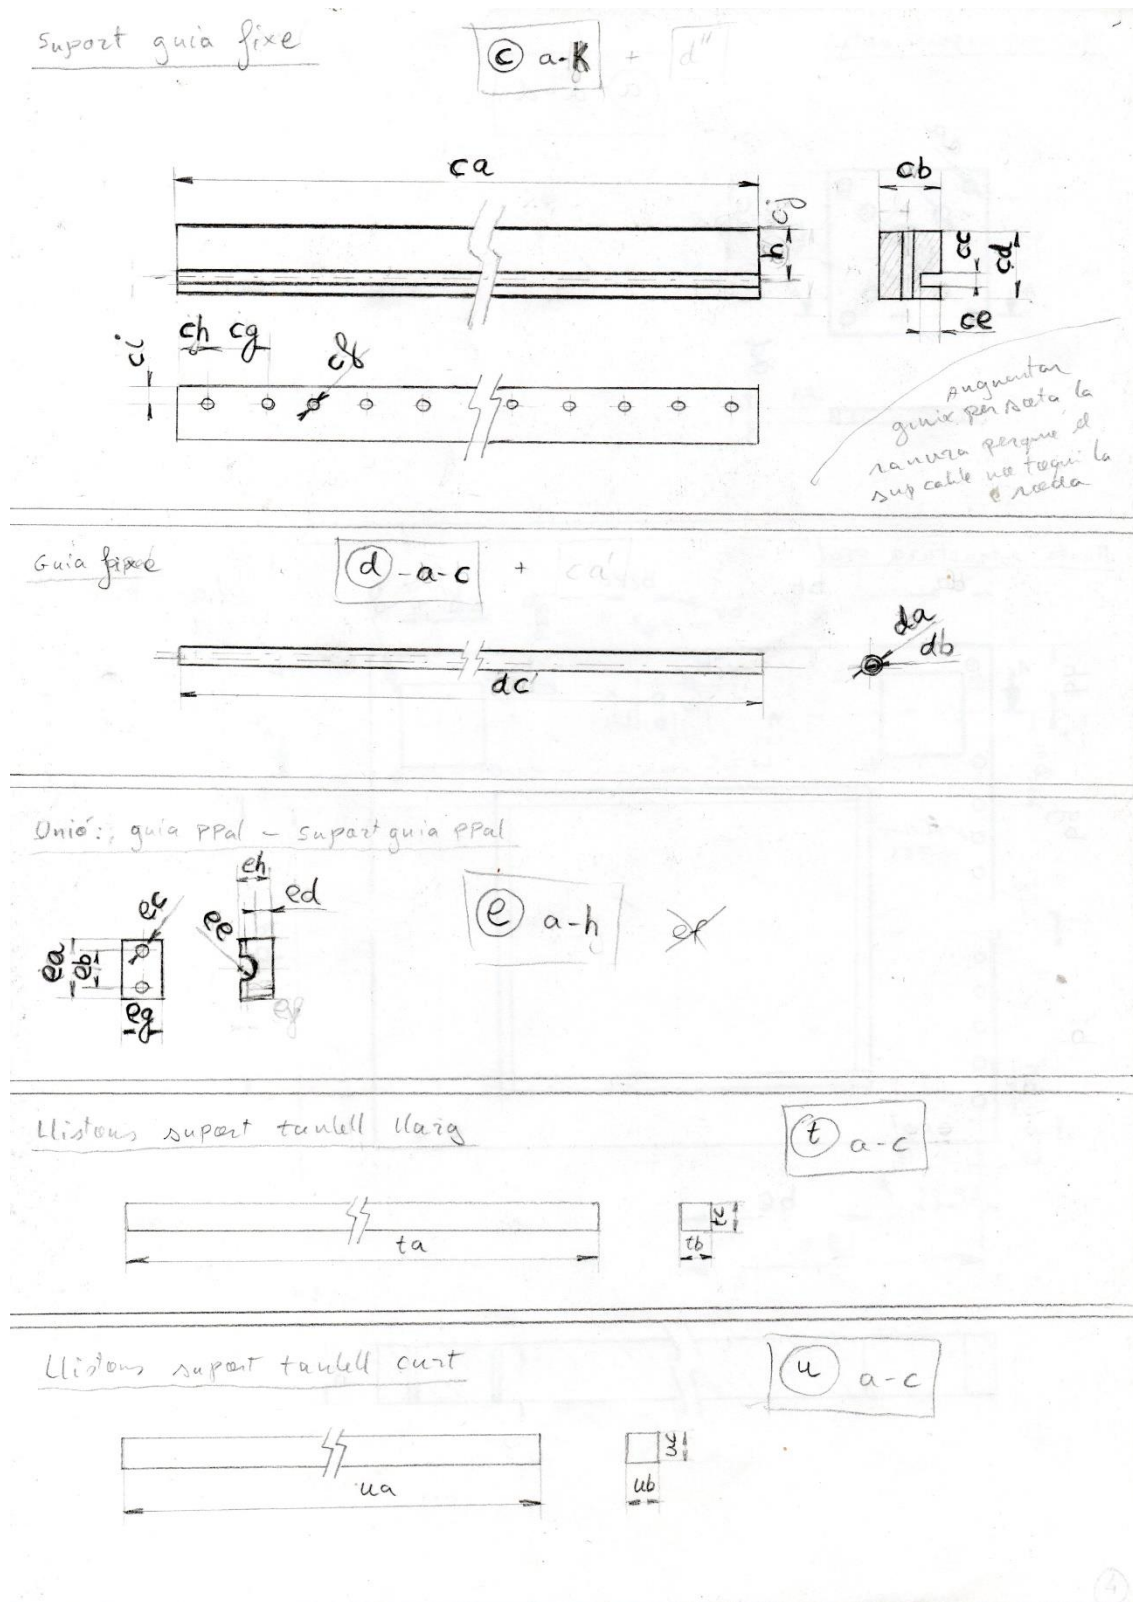 Suport guia fixe
c a-k + d"
ca
cj
h
cb
cc
cd
ce
ch cg
ci
cf
augmentar
guix per sota la
ranura perquè el
sup cable no toqui la
roda
Guia fixe
d - a - c + ca'
da
db
dc'
Unió: guia PPal - suport guia PPal
eh
ed
ec
ee
e a-h
ef
ea
eb
eg
ef
Llistons suport taulell llarg
t a-c
ta
tb
tc
Llistons suport taulell curt
u a-c
ua
ub
uc
4